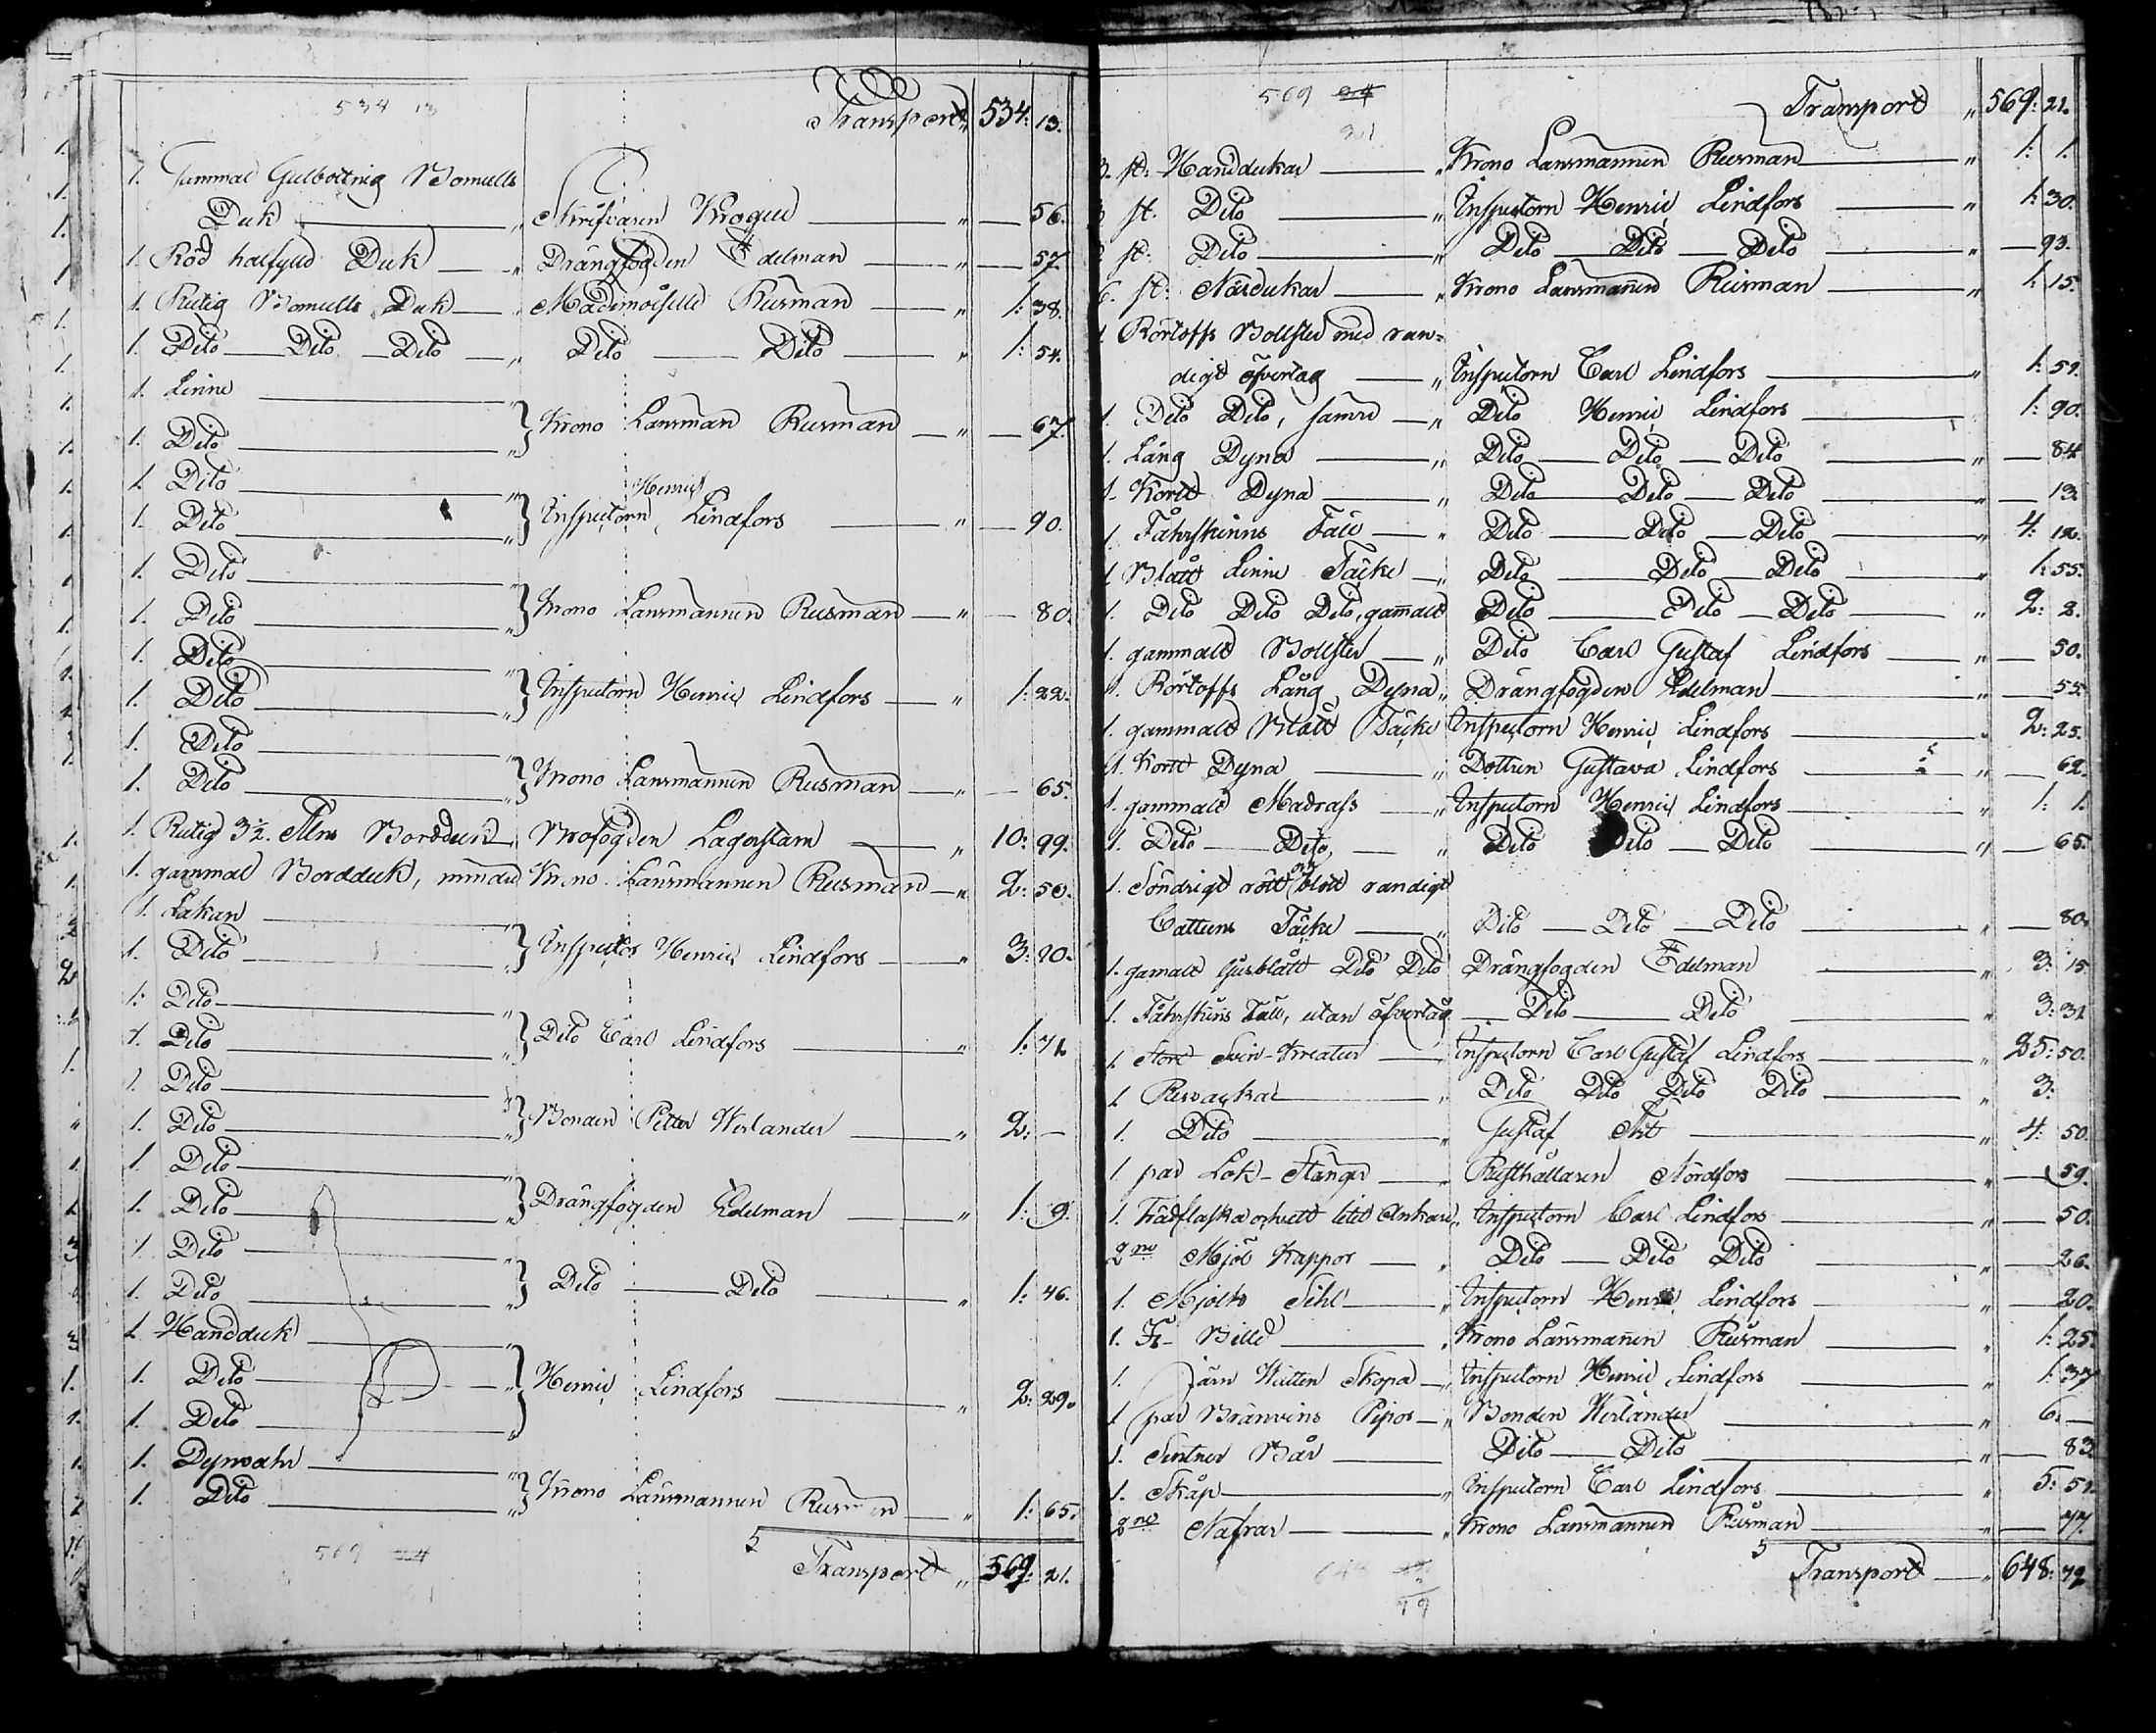 534 13
Transport " 534: 13.
1. Gammal Gulbottnig Bomulls
Duk " Skrifvaren Krogell " — 56.
1. Röd halfylle Duk " Drängfogden Edelman " — 57.
1. Rutig Bomulls Duk " Mademoiselle Rusman " 1: 38.
1. Dito Dito Dito " Dito Dito " 1: 54.
1. Linne
1. Dito " } Krono Lansman Rusman " — 67.
1. Dito "
Henric
1. Dito " } Inspectorn Lindfors " — 90.
1. Dito "
1. Dito " } Krono Lansmannen Rusman " — 80.
1. Dito "
1. Dito " } Inspectorn Henric Lindfors " 1: 22.
1. Dito "
1. Dito " } Krono Lansmannen Rusman " — 65.
1. Rutig 3½ Alns Bordduk Brofogden Lagerstam " 10: 99.
1. gammal Bordduk, mindre Krono Länsmannen Rusman " 2: 50.
1. Lakan "
1. Dito " } Inspector Henric Lindfors " 3: 20.
1. Dito "
1. Dito " } Dito Carl Lindfors " 1: 71.
1. Dito "
1. Dito " } Bonden Petter Werlander " 2: —
1. Dito "
1. Dito " } Drängfogden Edelman " 1: 9.
1. Dito "
1. Dito " } Dito Dito " 1: 46.
1. Handduk "
1. Dito " } Henric Lindfors " 2: 29.
1. Dito "
1. Dynvahr "
1. Dito " } Krono Länsmannen Rusman " 1: 65.
569
Transport " 569: 21.
569
21
Transport " 569: 21.
3. st: Handdukar " Krono Lansmannen Rusman " 1: 1.
st. Dito " Inspectorn Henric Lindfors " 1: 30.
st: Dito " Dito Dito Dito " — 93.
6. st: Näsdukar " Krono Lansmannen Rusman " 1: 15.
1. Rörtoffs Bollster med ran=
digt öfvertag " Inspectorn Carl Lindfors " 1: 51.
1. Dito Dito, sämre " Dito Henric Lindfors 1: 90.
1. Lång Dyna " Dito Dito Dito " — 84
1. Kort Dyna " Dito Dito Dito " — 13.
1. Fåhrskinns Fäll " Dito Dito Dito " 4: 12.
1. Blått Linne Täcke " Dito Dito Dito " 1: 55.
1. Dito Dito Dito, gammalt Dito Dito Dito " 2: 2.
1. gammalt Bollster " Dito Carl Gustaf Lindfors " — 50.
1. Rörtoffs Lång Dyna " Drängfogden Edelman " — 55.
1. gammalt Blått Täcke Inspectorn Henric Lindfors " 2: 25.
1. Kort Dyna " Dottren Gustava Lindfors " — 62.
1. gammalt Madrass " Inspectorn Henric Lindfors " 1: 1.
1. Dito Dito " Dito Dito Dito " — 65.
1. Söndrigt rött och blått randigt
Cattuns Täcke " Dito Dito Dito " — 80.
1. gamalt ljusblått Dito Dito Drängfogden Edelman " 3: 15.
1. Fåhrskins Fäll, utan öfvertag Dito Dito " 3: 31
1. Stort Svin-Kreatur Inspectorn Carl Gustaf Lindfors " 25: 50.
1. Dito Dito Dito Dito " 3:
1. Dito " Gustaf " 4: 50.
1. par Lok-Stänger " Rusthållaren Nordfors " — 59.
1. Träflaska och ett litet Ankare " Inspectorn Carl Lindfors " — 50.
2ne Mjöl Kappor " Dito Dito Dito " — 26.
1. Mjölk Sihl " Inspectorn Henric Lindfors " — 20.
1. Bille " Krono Länsmannen Rusman " 1: 25.
1. Järn Watten Skopa " Inspectorn Henric Lindfors " 1: 37
1. par Bränvins Pipor " Bonden Werlander " 6: —
1. Bår Dito Dito " — 83
1. Skåp " Inspectorn Carl Lindfors " 5: 51.
2ne Nafrar " Krono Lansmannen Rusman " — 77.
Transport " 648: 79.